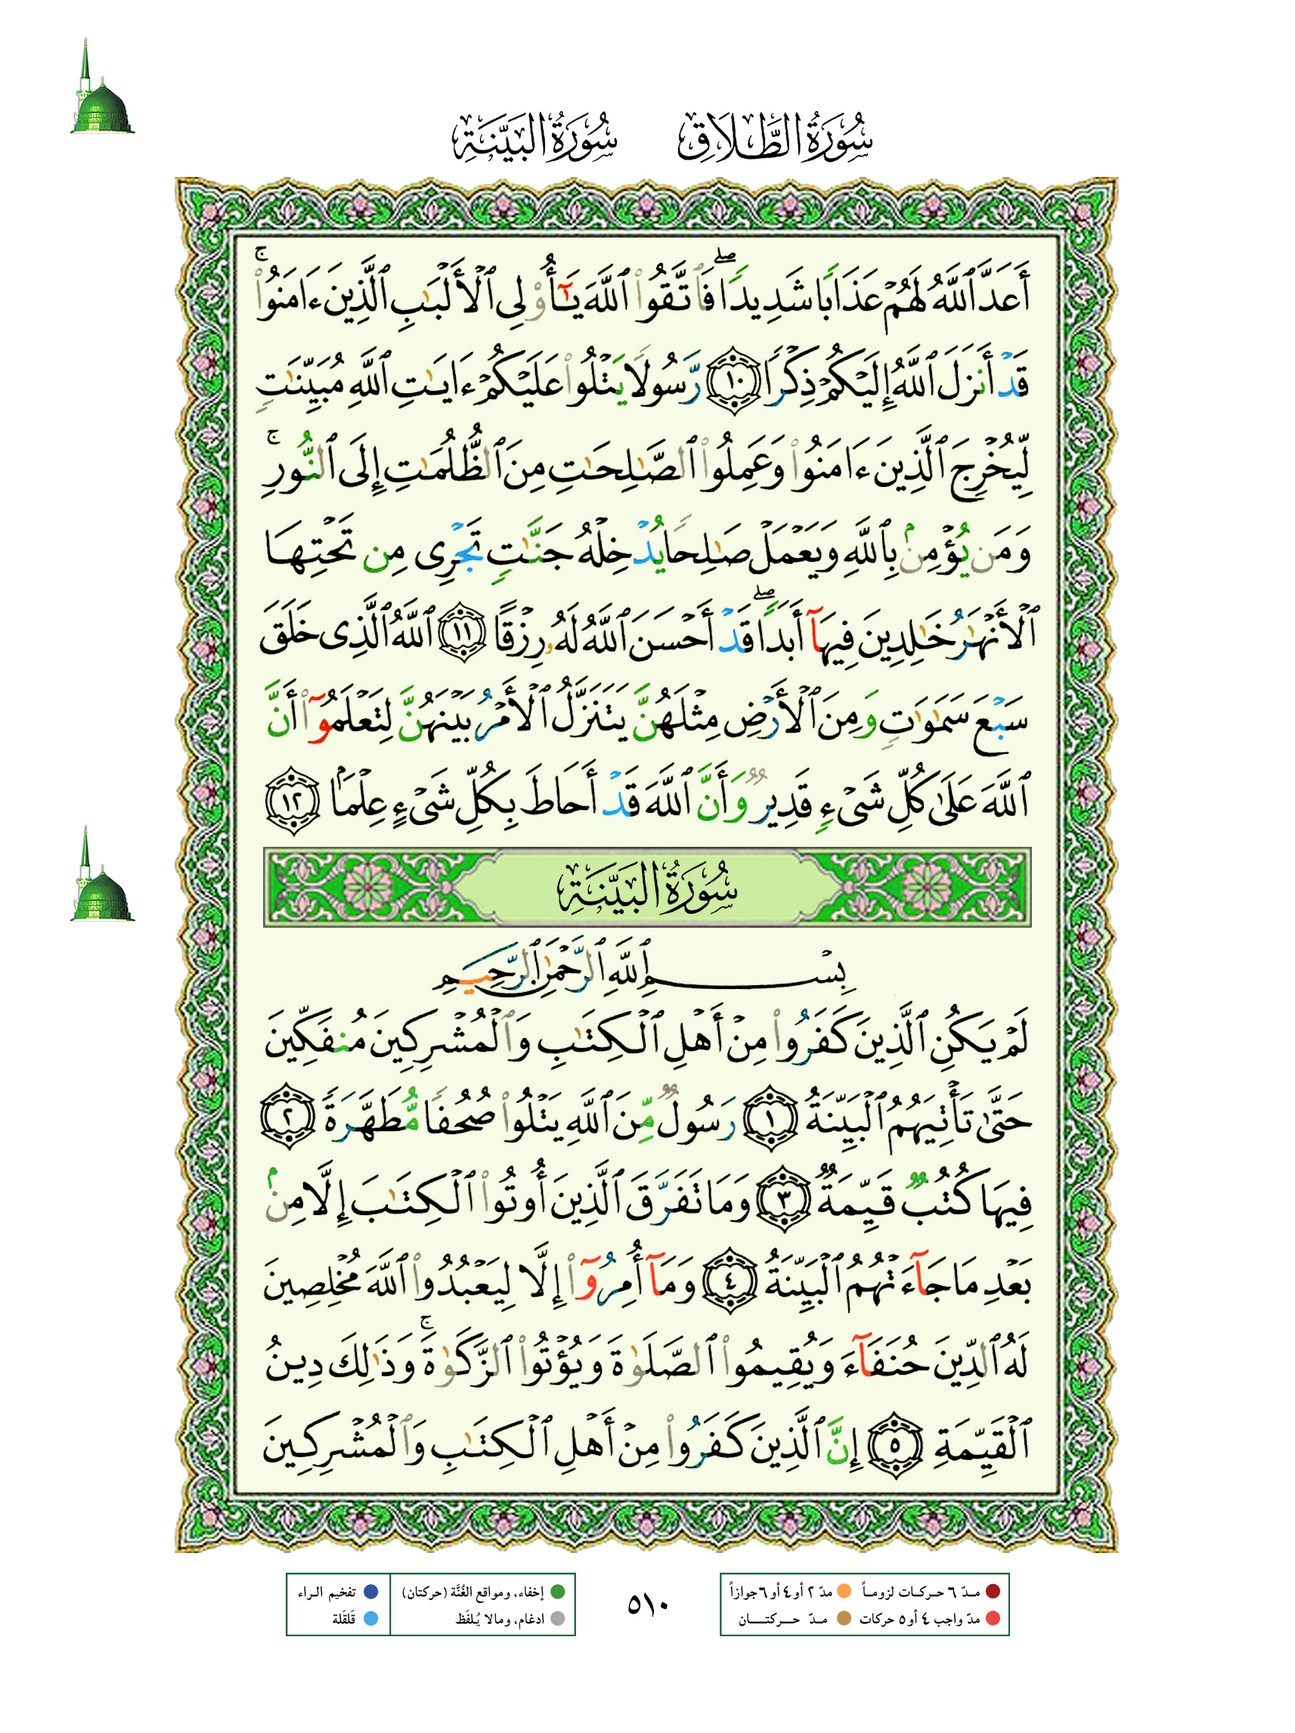 سُورَةُ الطَّلَاقِ سُورَةُ البَيِّنَةِ
أَعَدَّ ٱللَّهُ لَهُمْ عَذَابًا شَدِيدًا ۖ فَٱتَّقُوا۟ ٱللَّهَ يَـٰٓأُو۟لِى ٱلْأَلْبَـٰبِ ٱلَّذِينَ ءَامَنُوا۟ ۚ
قَدْ أَنزَلَ ٱللَّهُ إِلَيْكُمْ ذِكْرًا ١٠ رَّسُولًا يَتْلُوا۟ عَلَيْكُمْ ءَايَـٰتِ ٱللَّهِ مُبَيِّنَـٰتٍ
لِّيُخْرِجَ ٱلَّذِينَ ءَامَنُوا۟ وَعَمِلُوا۟ ٱلصَّـٰلِحَـٰتِ مِنَ ٱلظُّلُمَـٰتِ إِلَى ٱلنُّورِ ۚ
وَمَن يُؤْمِنۢ بِٱللَّهِ وَيَعْمَلْ صَـٰلِحًا يُدْخِلْهُ جَنَّـٰتٍ تَجْرِى مِن تَحْتِهَا
ٱلْأَنْهَـٰرُ خَـٰلِدِينَ فِيهَآ أَبَدًا ۖ قَدْ أَحْسَنَ ٱللَّهُ لَهُۥ رِزْقًا ١١ ٱللَّهُ ٱلَّذِى خَلَقَ
سَبْعَ سَمَـٰوَٰتٍ وَمِنَ ٱلْأَرْضِ مِثْلَهُنَّ يَتَنَزَّلُ ٱلْأَمْرُ بَيْنَهُنَّ لِتَعْلَمُوٓا۟ أَنَّ
ٱللَّهَ عَلَىٰ كُلِّ شَىْءٍ قَدِيرٌ وَأَنَّ ٱللَّهَ قَدْ أَحَاطَ بِكُلِّ شَىْءٍ عِلْمًۢا ١٢
سُورَةُ البَيِّنَةِ
بِسْمِ ٱللَّهِ ٱلرَّحْمَـٰنِ ٱلرَّحِيمِ
لَمْ يَكُنِ ٱلَّذِينَ كَفَرُوا۟ مِنْ أَهْلِ ٱلْكِتَـٰبِ وَٱلْمُشْرِكِينَ مُنفَكِّينَ
حَتَّىٰ تَأْتِيَهُمُ ٱلْبَيِّنَةُ ١ رَسُولٌ مِّنَ ٱللَّهِ يَتْلُوا۟ صُحُفًا مُّطَهَّرَةً ٢
فِيهَا كُتُبٌ قَيِّمَةٌ ٣ وَمَا تَفَرَّقَ ٱلَّذِينَ أُوتُوا۟ ٱلْكِتَـٰبَ إِلَّا مِنۢ
بَعْدِ مَا جَآءَتْهُمُ ٱلْبَيِّنَةُ ٤ وَمَآ أُمِرُوٓا۟ إِلَّا لِيَعْبُدُوا۟ ٱللَّهَ مُخْلِصِينَ
لَهُ ٱلدِّينَ حُنَفَآءَ وَيُقِيمُوا۟ ٱلصَّلَوٰةَ وَيُؤْتُوا۟ ٱلزَّكَوٰةَ ۚ وَذَٰلِكَ دِينُ
ٱلْقَيِّمَةِ ٥ إِنَّ ٱلَّذِينَ كَفَرُوا۟ مِنْ أَهْلِ ٱلْكِتَـٰبِ وَٱلْمُشْرِكِينَ
مـدّ ٦ حـركـات لزومـاً مدّ ٢ أو ٤ أو ٦ جوازاً
مدّ واجب ٤ أو ٥ حركات مـدّ حـركتـان
٥١٠
إخفاء، ومواقع الغُنَّة (حركتان) تفخيم الـراء
ادغام، ومالا يُلفَظ قَلقَلة